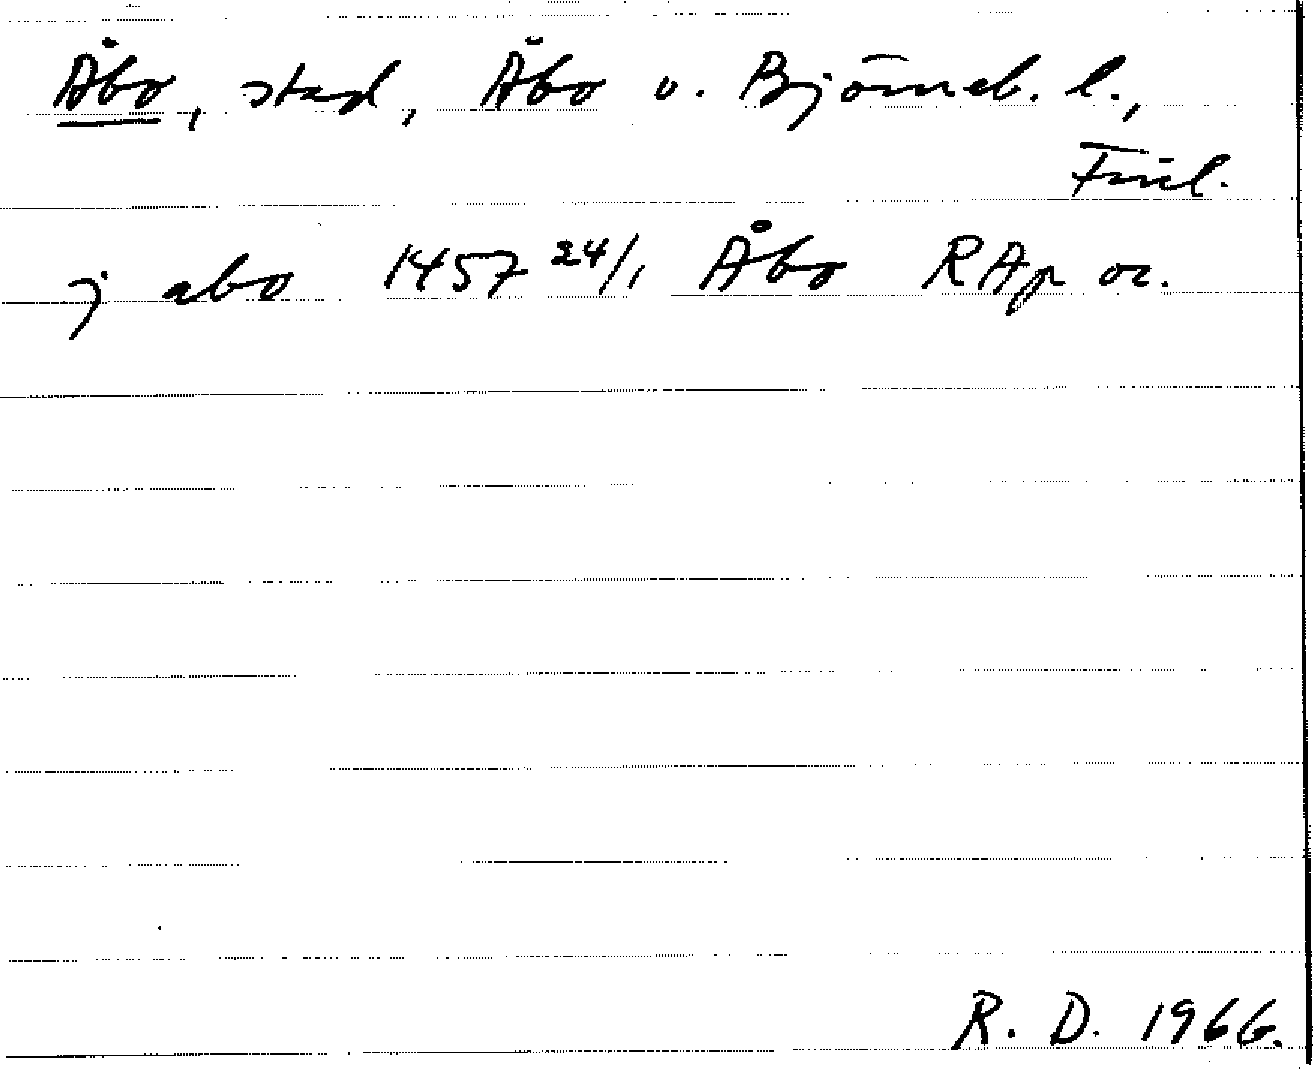 Åbo, stad, Åbo o. Björneb. l.,
Finl.
j abo 1457 24/1 Åbo RAp or.
R. D. 1966.